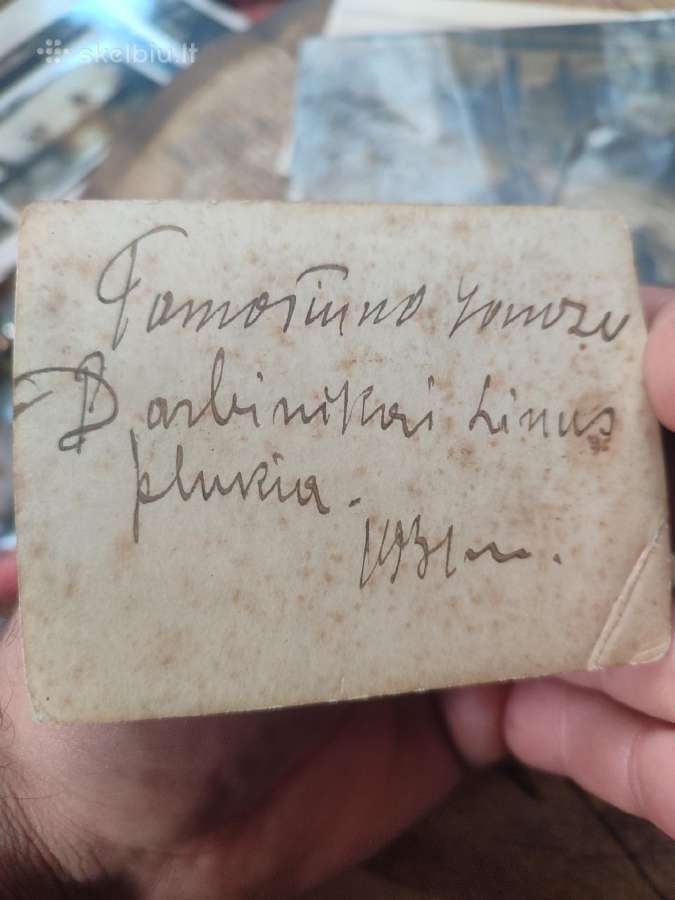 skelbiu.lt
Tamošiuno
Darbinikai Linus
plukia.
1931 m.